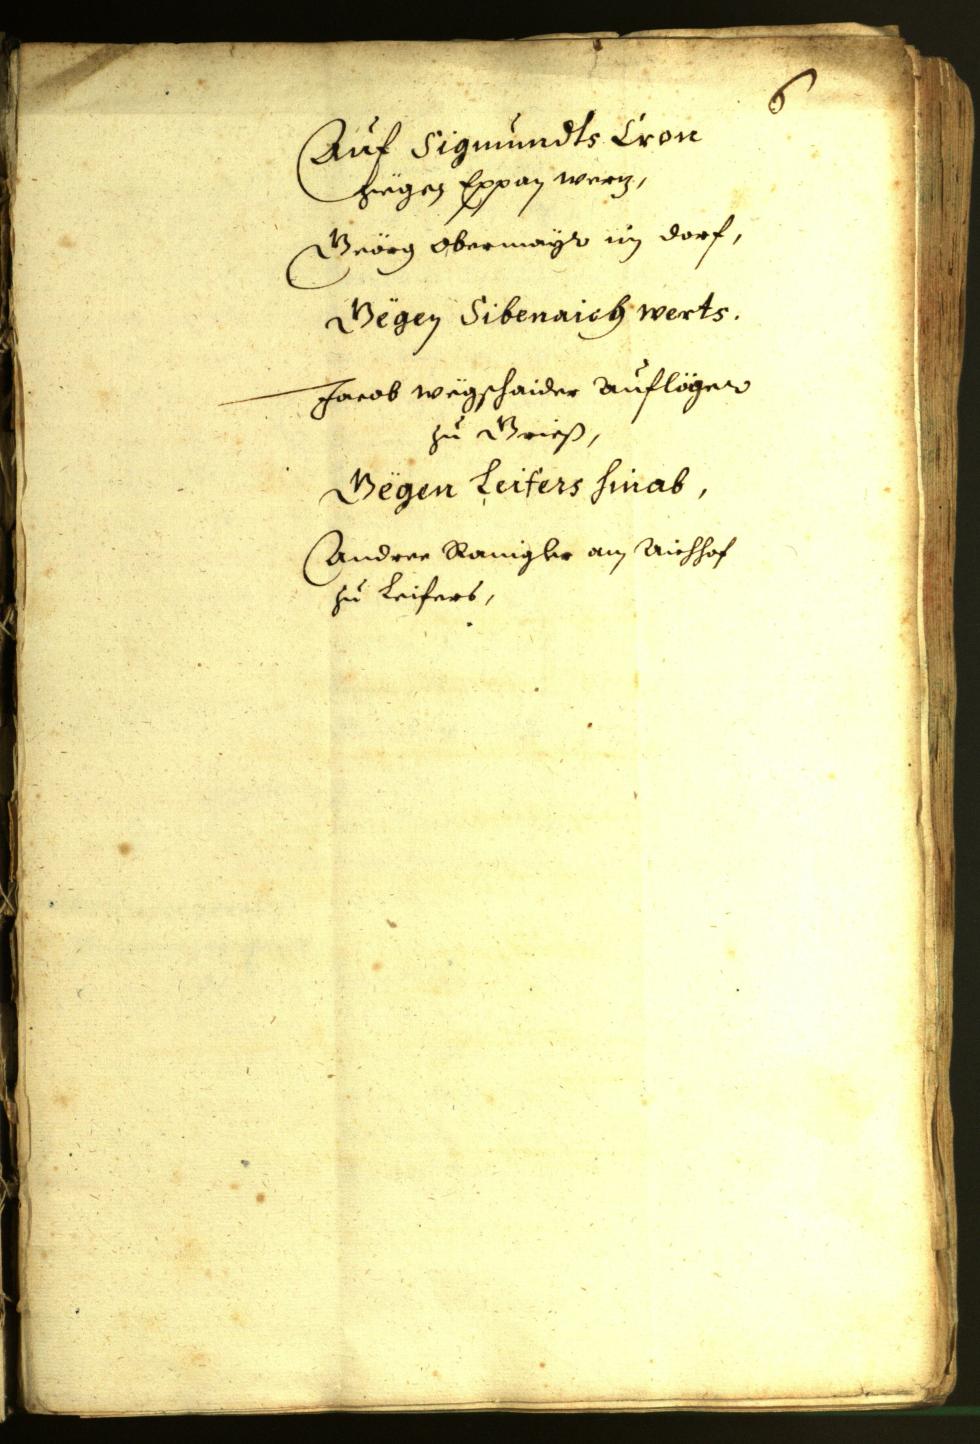 6
Auf Sigmundts Cron
gegen Eppan werz,
Geörg Obermayr im dorf,
Gegen Sibenaich werts.
Jacob wegschaider Aufleger
zu Grieß,
Gegen Leifers hinab,
Andree Ranigler am Aichhof
zu Leifers,